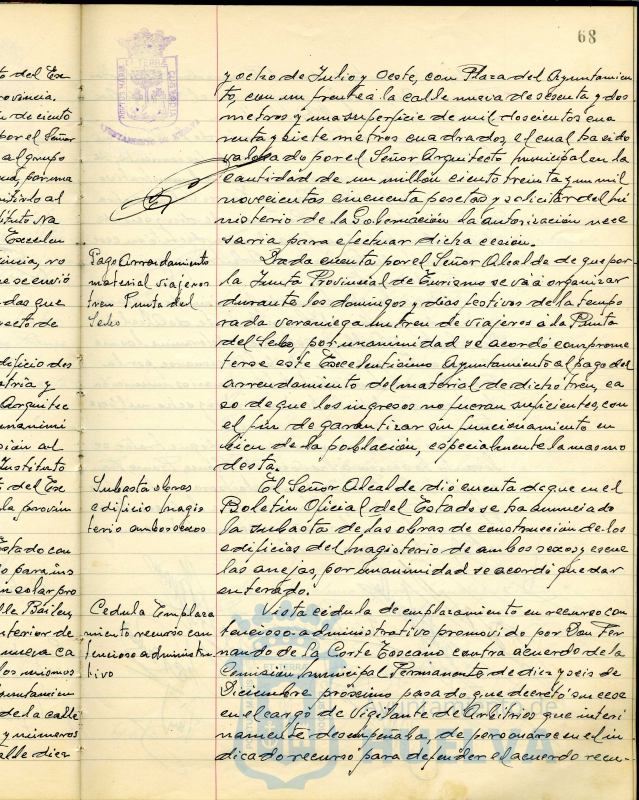 68
y ocho de Julio y Oeste, con Plaza del Ayuntamien
to, con un frente á la calle nueva de sesenta y dos
metros y una superficie de mil doscientos cua
renta y siete metros cuadrados, el cual ha sido
valorado por el Señor Arquitecto municipal en la
cantidad de un millón ciento treinta y un mil
novecientas cincuenta pesetas y solicitar del Mi
nisterio de la Gobernación la autorización nece
saria para efectuar dicha cesión.
Pago Arrendamiento
material viajeros
tren Punta del
Sebo
Dada cuenta por el Señor Alcalde de que por
la Junta Provincial de Turismo se vá á organizar
durante los domingos y dias festivos de la tempo
rada veraniega un tren de viajeros á la Punta
del Sebo, por unanimidad se acordó comprome
terse este Excelentísimo Ayuntamiento al pago del
arrendamiento del material de dicho tren, ca
so de que los ingresos no fueran suficientes, con
el fin de garantizar su funcionamiento en
bien de la población, especialmente la mas mo
desta.
Subasta obras
edificio magis
terio ambos sexos
El Señor Alcalde dió cuenta de que en el
Boletín Oficial del Estado se ha anunciado
la subasta de las obras de construcción de los
edificios del magisterio de ambos sexos y escue
las anejas, por unanimidad se acordó quedar
enterado.
Cedula Emplaza
miento recurso con
tencioso administra
tivo
Vista cédula de emplazamiento en recurso con
tencioso-administrativo promovido por Don Fer
nando de la Corte Toscano contra acuerdo de la
Comisión Municipal Permanente de diez y seis de
Diciembre próximo pasado que decretó su cese
en el cargo de Vigilante de Arbitrios que interi
namente desempeñaba, de personarse en el in
dicado recurso para defender el acuerdo recu-
to del Ex
rovincia.
de ciento
por el Señor
al grupo
Excelen
incia, no
se envió
das que
yecto de
edificio des
atria y
Arquitec
unanimi
sión al
Instituto
del Ex
la provin
Estado con
n solar pro
lle Bailen,
nterior de
nueva ca
los mismos
yuntamien
de la calle
y números
alle diez
Ayuntamiento de
HUELVA